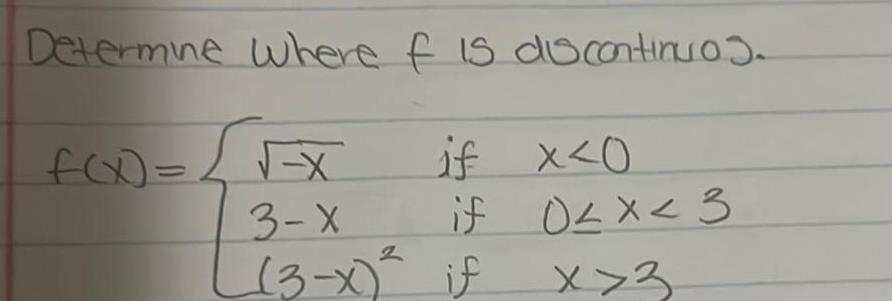 Determine where f is discontinuos.
f(x) = { √-x if x<0
3-x if 0≤x<3
(3-x)² if x>3